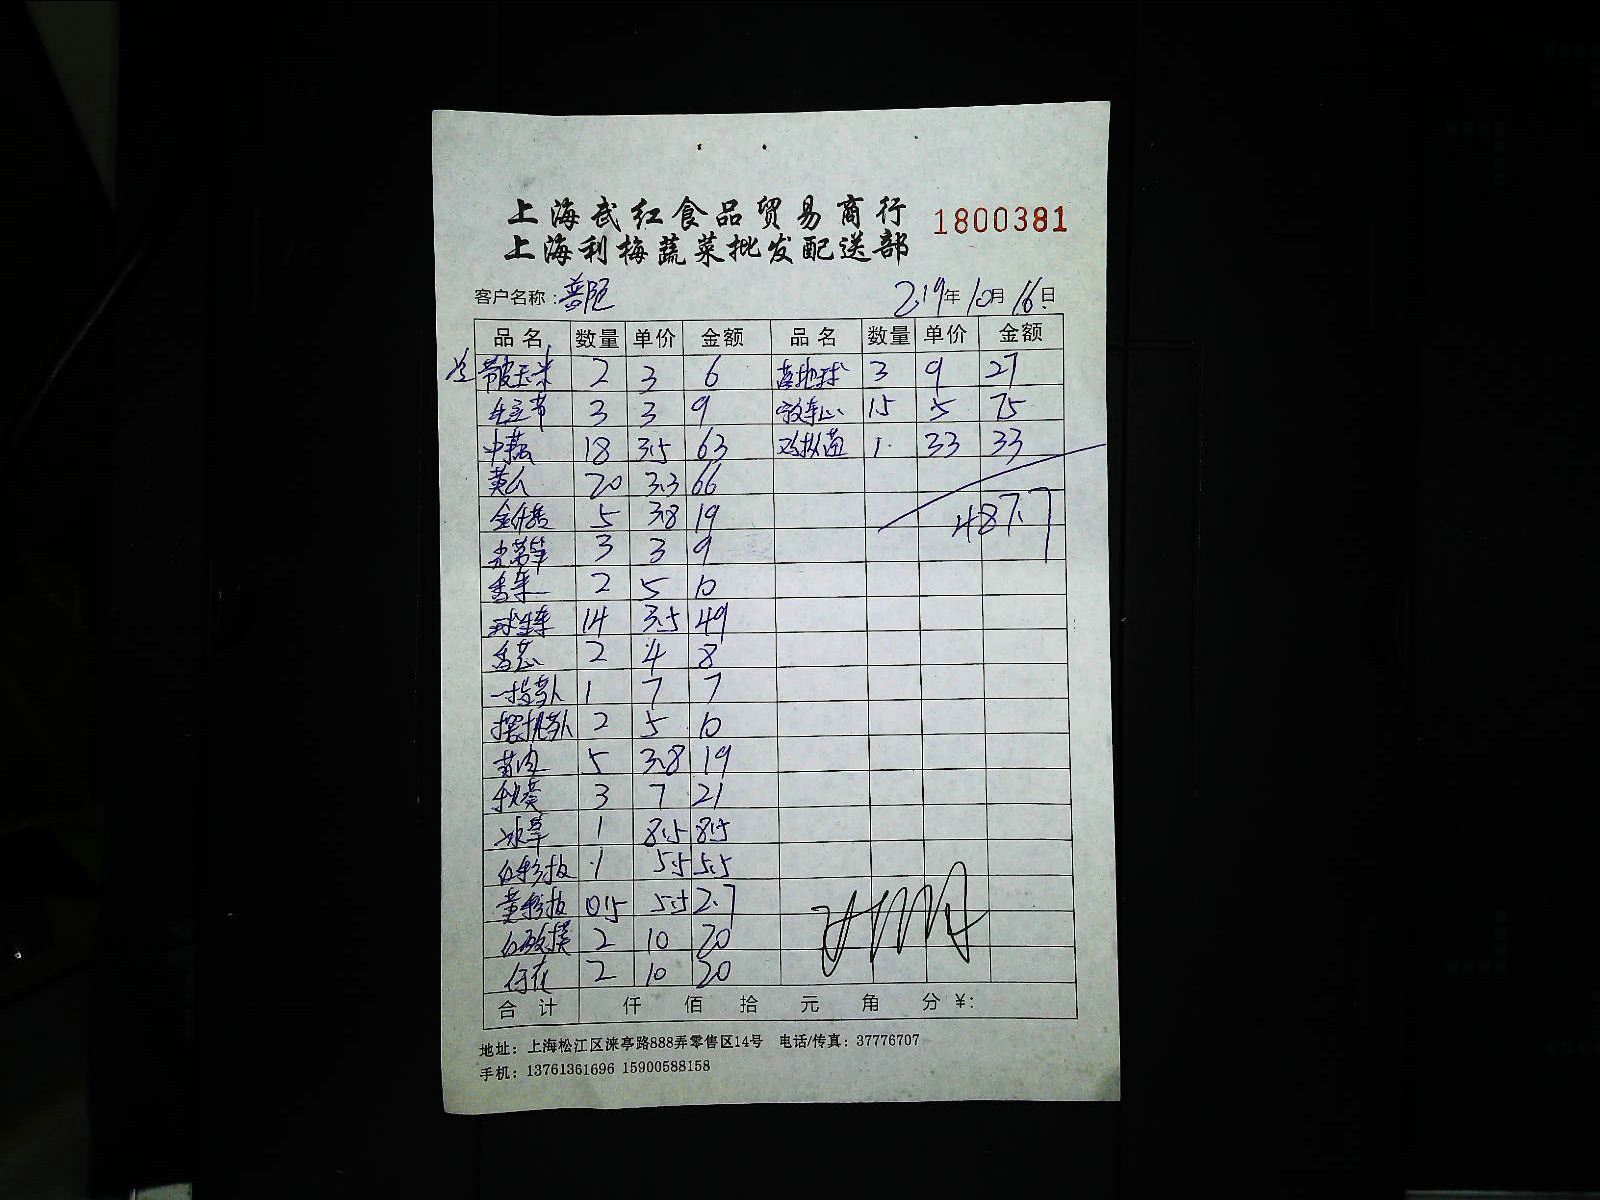 上海武红食品贸易商行
上海利梅蔬菜批发配送部
1800381
客户名称：普陀 2019年10月16日
品名 数量 单价 金额 品名 数量 单价 金额
带皮玉米 2 3 6 3 9 27
3 3 9 15 5 75
中藕 18 3.5 63 鸡枞菌 1 33 33
20 3.3 66
5 3.8 19 487.7
3 3 9
香菜 2 5 10
球生菜 14 3.5 49
2 4 8
1 7 7
2 5 10
5 3.8 19
秋葵 3 7 21
冰草 1 8.5 8.5
红彩椒 1 5.5 5.5
黄彩椒 0.5 5.5 2.7
2 10 20
2 10 20
合计 仟 佰 拾 元 角 分 ¥:
地址：上海松江区涞亭路888弄零售区14号 电话/传真：37776707
手机：13761361696 15900588158